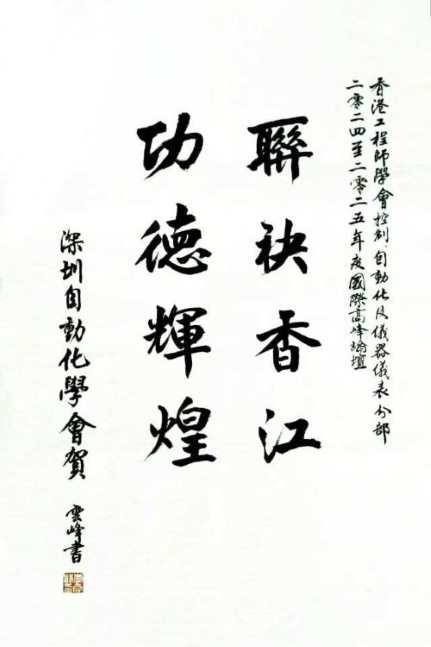 香港工程師學會控制自動化及儀器儀表分部
二零二四至二零二五年度國際高峰論壇
聯袂香江
功德輝煌
深圳自動化學會賀
雲峰書